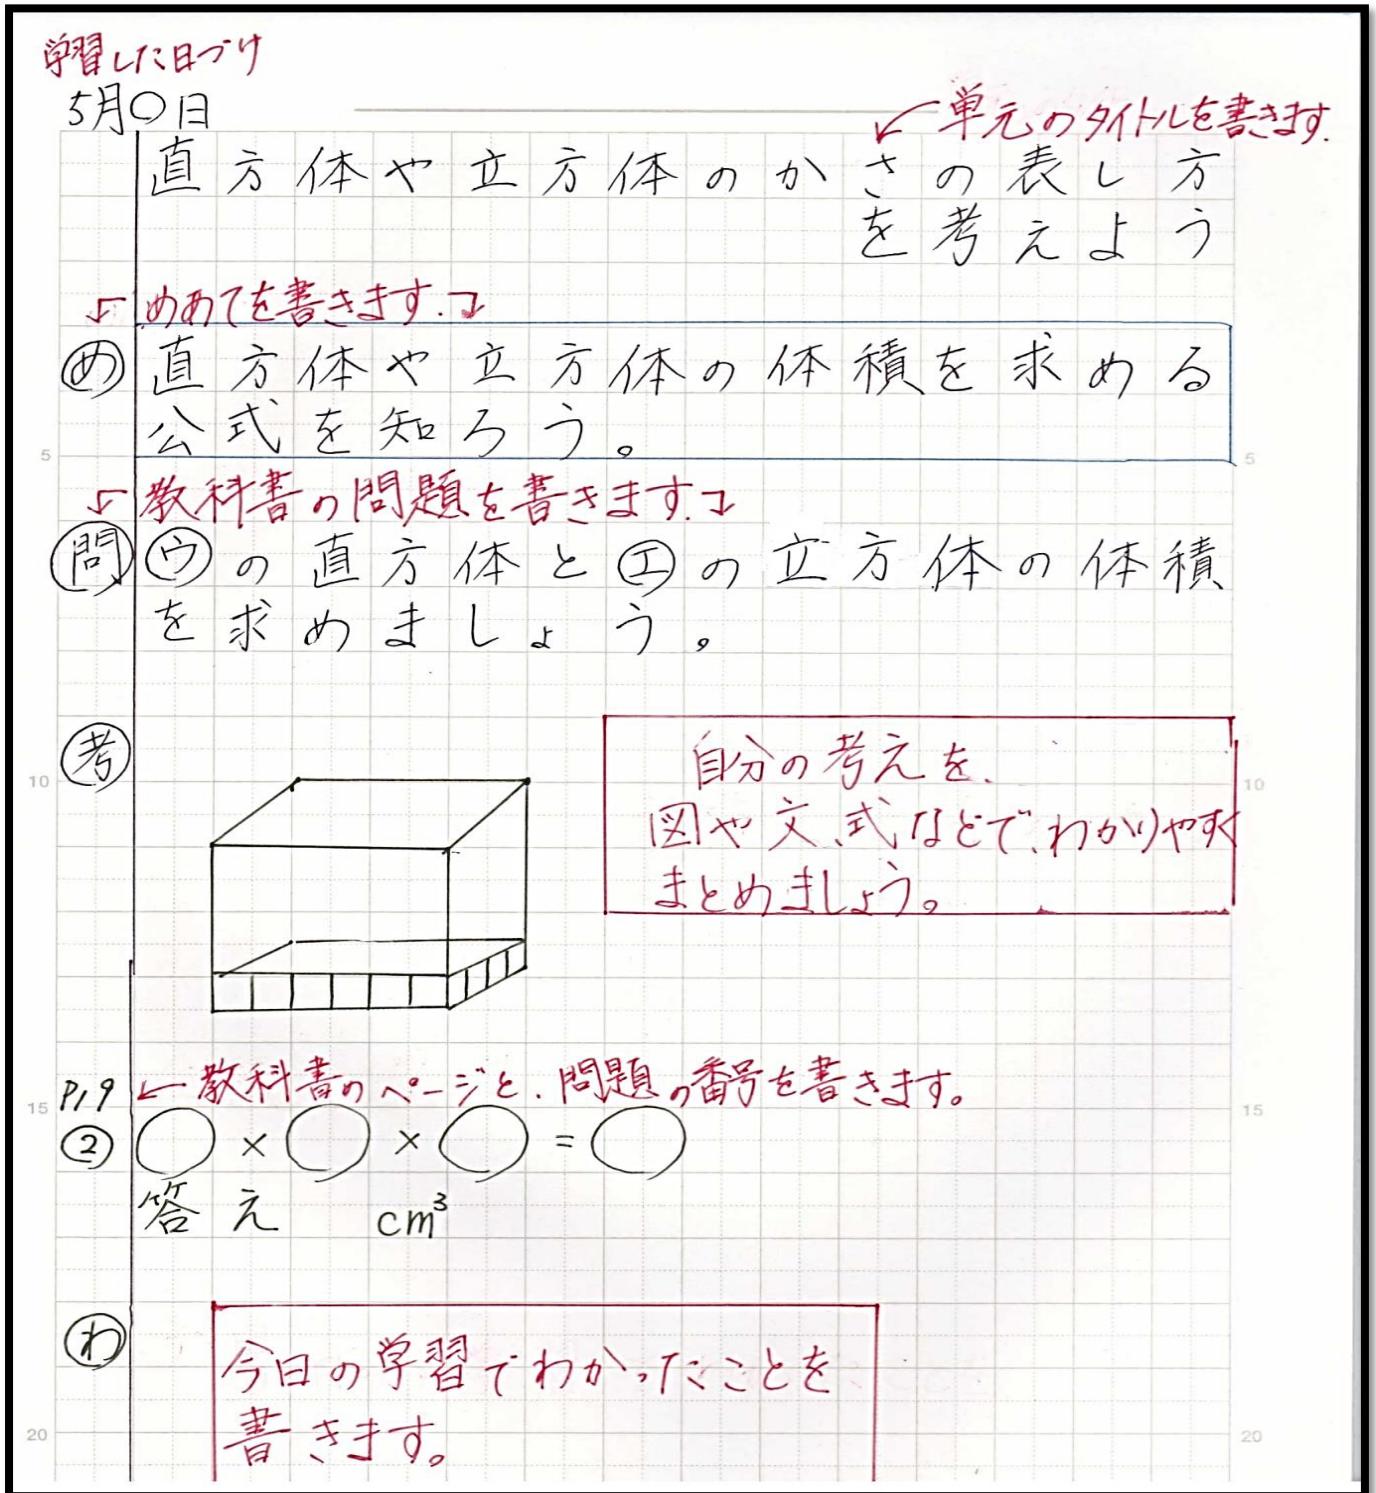 学習した日づけ
5月〇日
↙単元のタイトルを書きます.
直方体や立方体のかさの表し方
を考えよう
めあてを書きます.
め 直方体や立方体の体積を求める
公式を知ろう。
5 5
教科書の問題を書きます.
問 ウの直方体とエの立方体の体積
を求めましょう。
考
自分の考えを、
10 10
図や文、式などで、わかりやすく
まとめましょう。
P,9 ←教科書のページと、問題の番号を書きます。
15 15
② ○×○×○=○
答え cm³
わ
今日の学習でわかったことを
書きます。
20 20